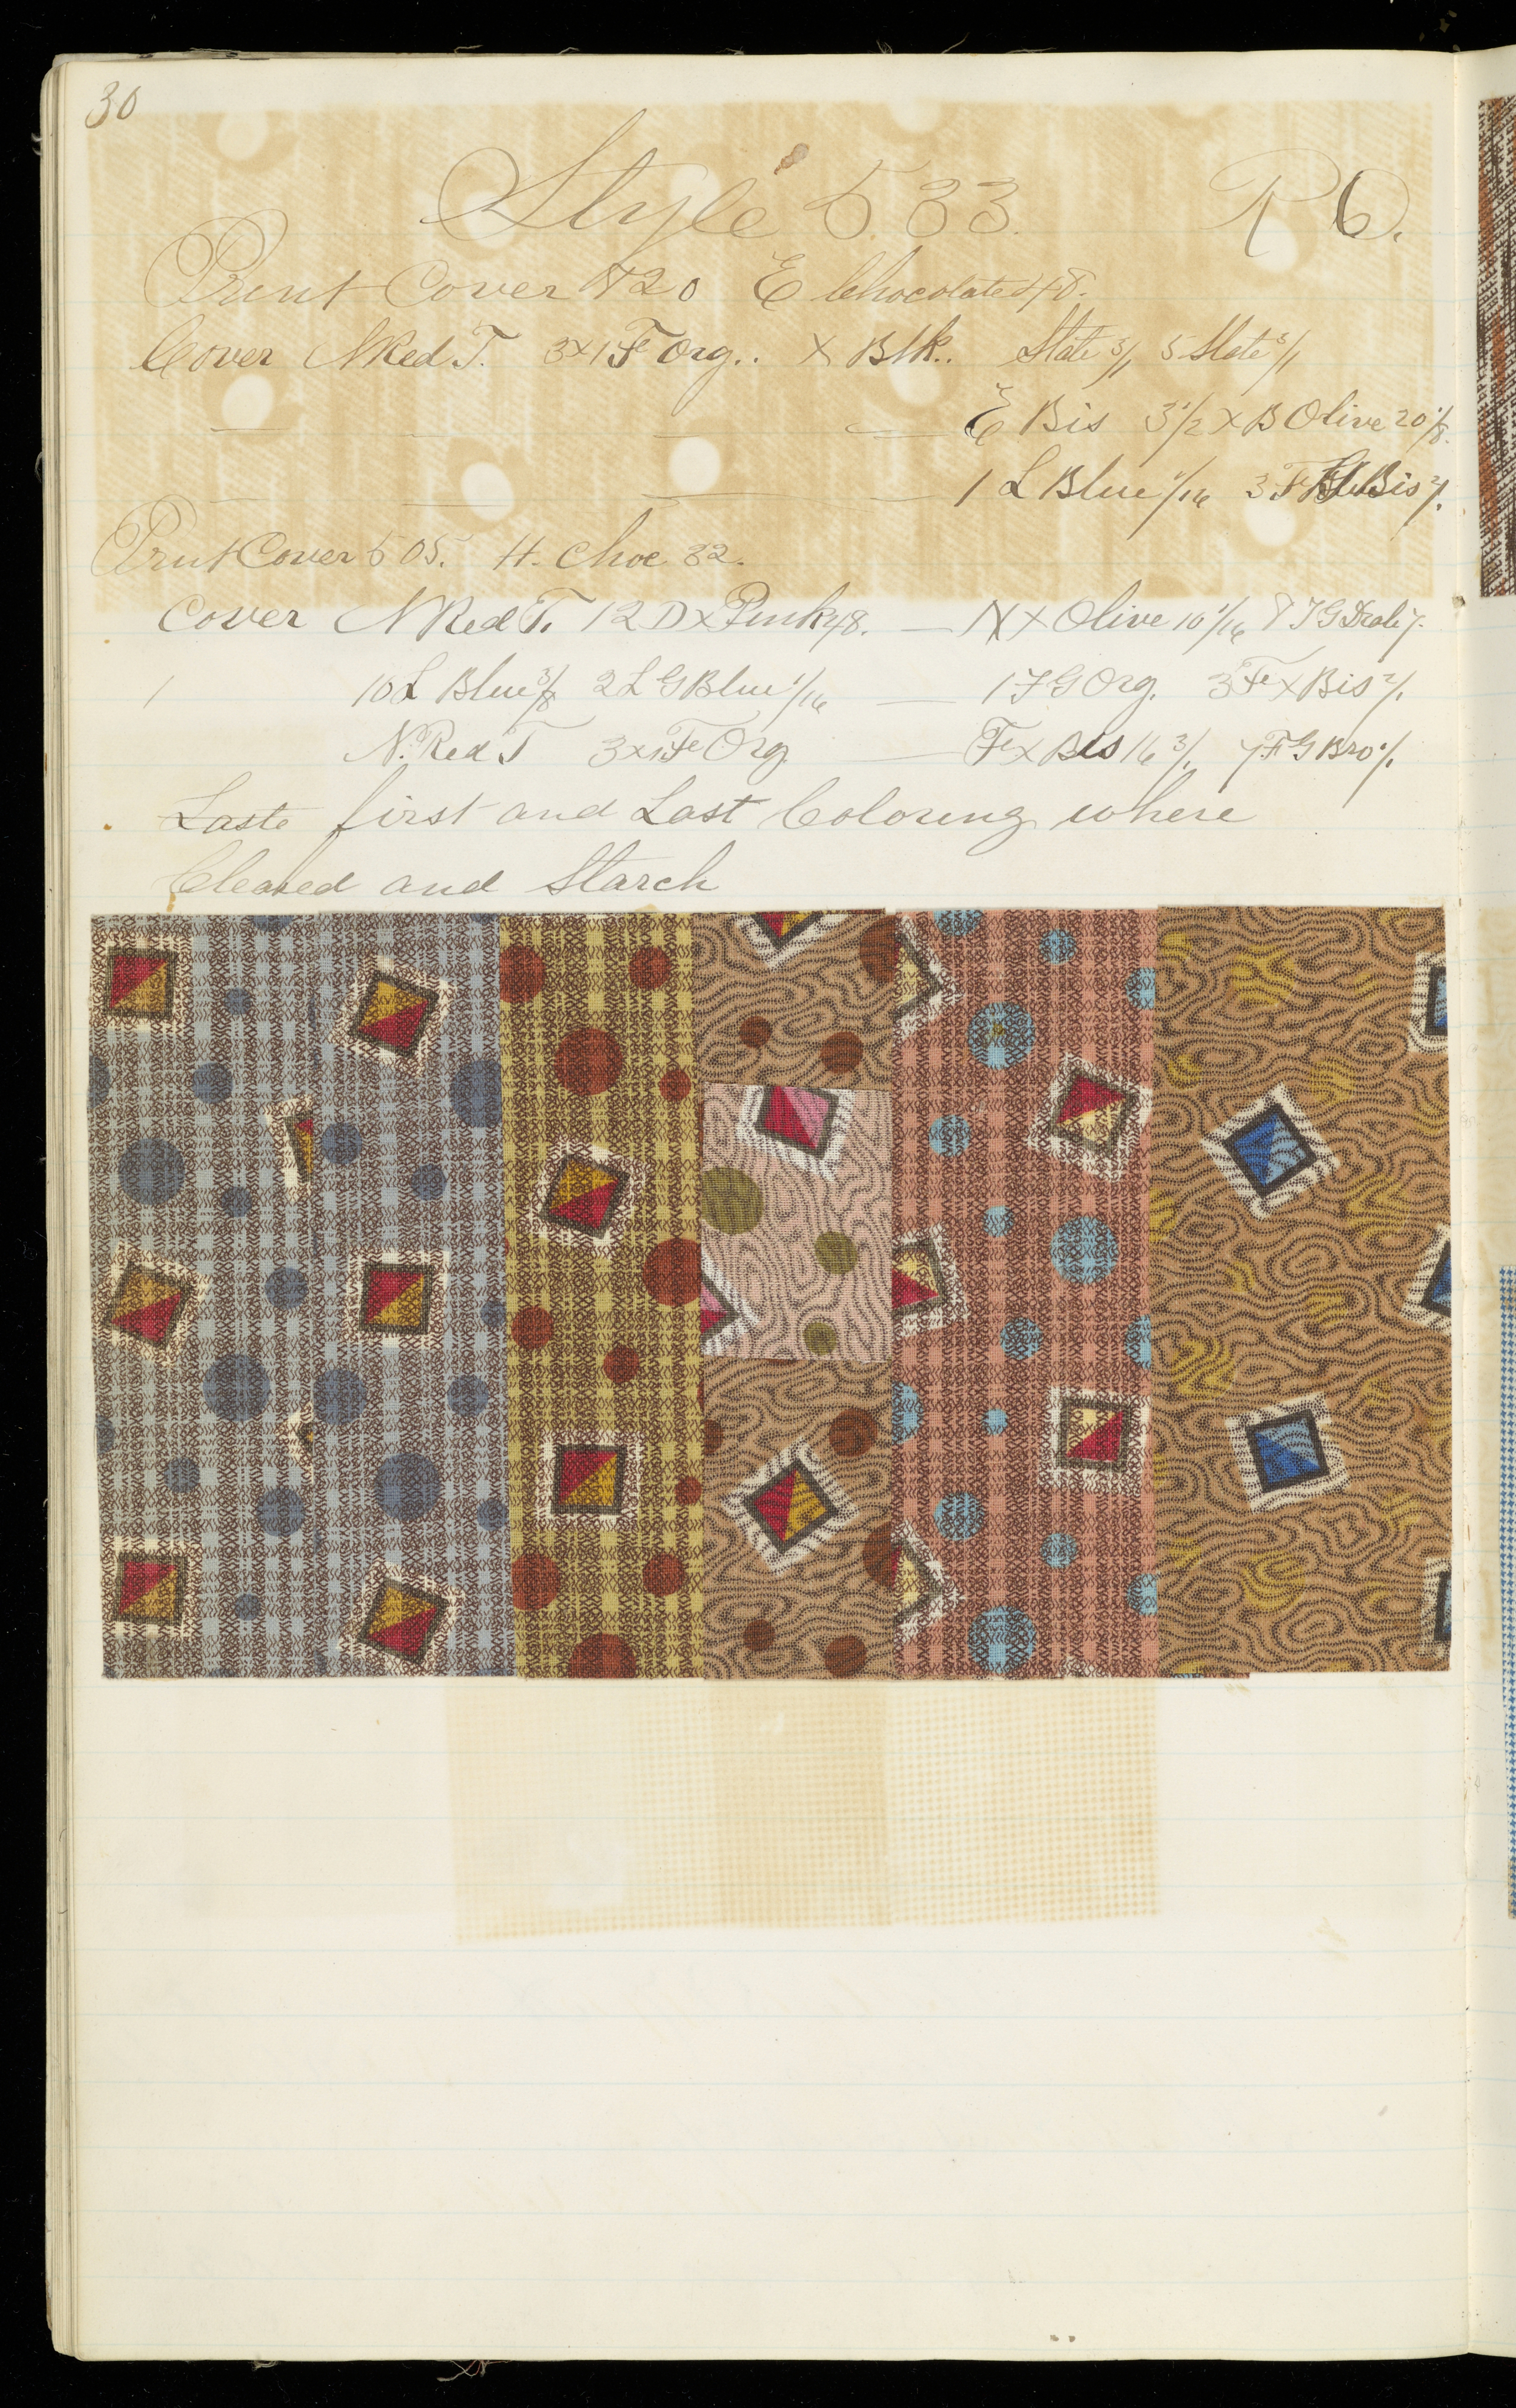 30
Style 533. R 6.
Print Cover 420 E Chocolate 48.
Cover N Red T. 3x1 Fe Org.. X Blk.. Slate 3/1 5 Slate 3/1
E Bis 3 1/2 X B Olive 20 1/8.
1 L Blue 1/16 3 F Bis 2/1.
Print Cover 505. H. Choc 32.
Cover N Red T. 12 D x Pink 48. — N x Olive 10 1/16
1 10 L Blue 3/8 2 L G Blue 1/16 — 1 F G Org. 3 Fe X Bis 2/1.
N. Red T 3x1 Fe Org. — Fe X Bis 16 3/1 7 F G Bro /1.
Laste first and Last Coloring where
Cleared and Starch